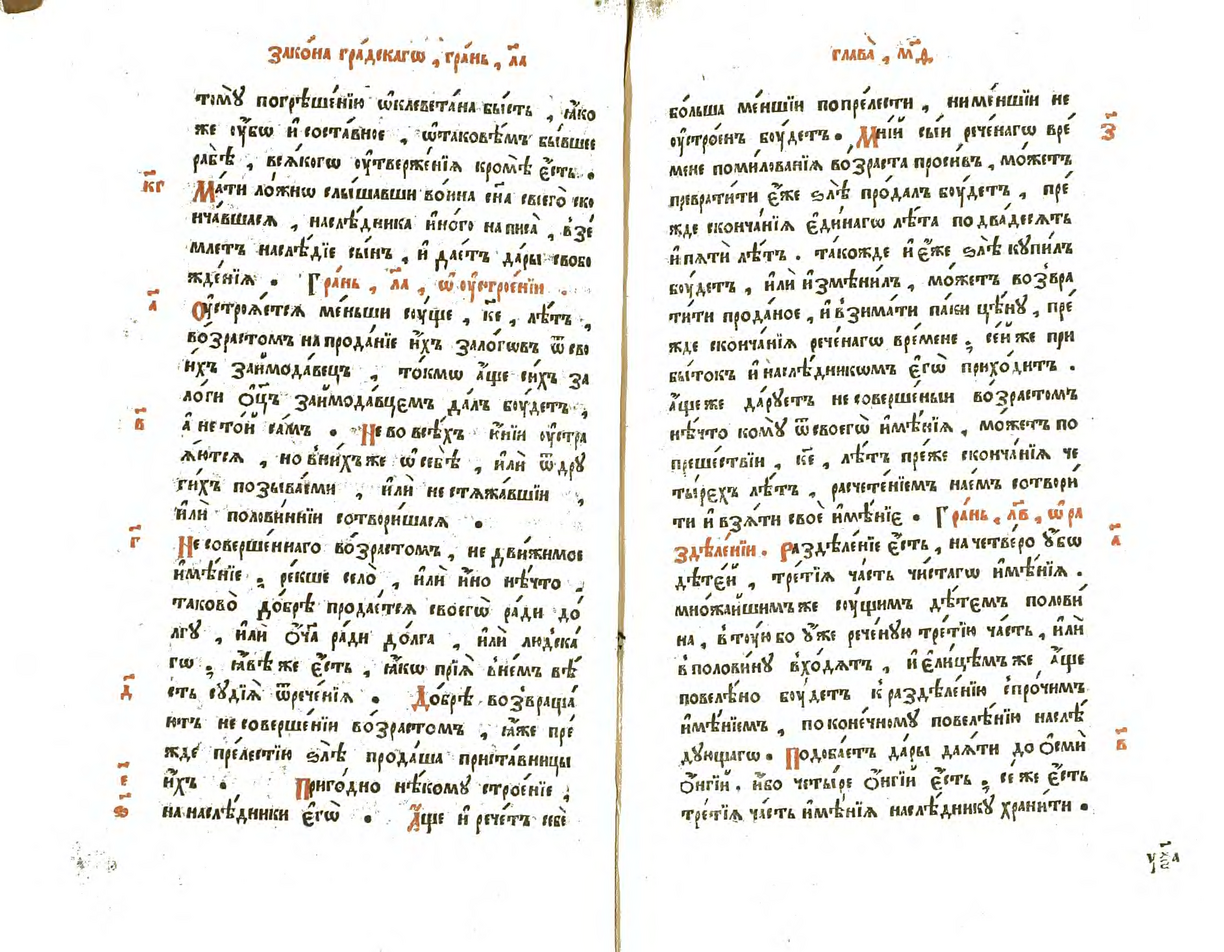 Зако́на гра́дскагѡ , гра́нь , л҃а
тому̀ погрѣше́нїю ѡ҆клевета́на бы́сть , ꙗ҆́ко
же ᲂу҆́бѡ и҆ соста́вное , ѡ҆ тако́вѣмъ бы́вшее
рабѣ̀ , вся́когѡ ᲂу҆твержє́нїѧ кромѣ̀ є҆́сть .
к҃г
Ма́ти ло́жнѡ слы́шавши во́ина сн҃а своего̀ ско
нча́вшасѧ , наслѣ́дника и҆но́го написа̀ , взе́
млетъ наслѣ́дїе сы́нъ , и҆ дае́тъ да́ры свобо
жде́нїѧ . Гра́нь , л҃а , ѡ҆ ᲂу҆строе́нїи .
а҃
Оу҆строѧ́етсѧ ме́ньши су́ще , к҃е , лѣ́тъ ,
во́зрастомъ на прода́нїе и҆́хъ зало́говъ ѿ сво
и́хъ заимода́вецъ , то́кмѡ а҆́ще си́хъ за
ло́ги ѻ҆ц҃ъ заимода́вцемъ да́лъ бу́детъ ,
в҃
а҆ не то́й са́мъ . Не во всѣ́хъ и҆нїи ᲂу҆стра
ѧ́ютсѧ , но в ни́хъже ѡ҆ себѣ̀ , и҆лѝ ѿ дру
ги́хъ позыва́еми , и҆лѝ не стяжа́вшїи ,
и҆лѝ полови́ннїи сотвори́шасѧ .
г҃
Не соверше́ннаго во́зрастомъ , не дви́жимое
и҆мѣ́нїе , ре́кше село̀ , и҆лѝ и҆́но нѣ́что ,
таково̀ до́брѣ прода́стсѧ своегѡ̀ ра́ди до́
лгу , и҆лѝ ѻ҆ч҃а ра́ди до́лга , и҆лѝ лю́дска
гѡ , ꙗ҆́вѣ же є҆́сть , ꙗ҆́кѡ прїѧ̀ в не́мъ вѣ́
д҃
сть судїѧ̀ ѿрече́нїѧ . До́брѣ возвраща́
ютъ не соверше́нїи во́зрастомъ , ꙗ҆́же пре́
жде пре́лестїю ѕлѣ̀ прода́ша приста́вницы
е҃
и҆́хъ . Приго́дно нѣ́кому строе́нїе ,
ѕ҃
на наслѣ́дники є҆гѡ̀ . А҆́ще и҆ рече́тъ себѐ
глава̀ , м҃д
бо́льша ме́ншїи по пре́лести , ни ме́ншїи не
з҃
ᲂу҆стро́енъ бу́детъ . Мні́й сы́и рече́нагѡ вре́
мене поми́лованїѧ во́зраста проси́въ , мо́жетъ
преврати́ти є҆́же ѕлѣ̀ про́далъ бу́детъ , пре́
жде сконча́нїѧ є҆ди́нагѡ лѣ́та по два́десѧть
и҆ пѧти́ лѣ́тъ . тако́жде и҆ є҆́же ѕлѣ̀ купи́лъ
бу́детъ , и҆лѝ и҆змѣни́лъ , мо́жетъ возвра
ти́ти про́даное , и҆ взима́ти па́ки цѣ́ну , пре́
жде сконча́нїѧ рече́нагѡ вре́мене , се́й же при
бы́токъ и҆ наслѣ́дникѡмъ є҆гѡ̀ прихо́дитъ .
а҆́ще же да́руетъ не соверше́ныи во́зрастомъ
нѣ́что кому̀ ѿ своегѡ̀ и҆мѣ́нїѧ , мо́жетъ по
преше́ствїи , к҃е , лѣ́тъ пре́же сконча́нїѧ че
ты́рехъ лѣ́тъ , расчете́нїемъ нае́мъ сотвори́
ти и҆ взѧ́ти своѐ и҆мѣ́нїе . Гра́нь , л҃в , ѡ҆ ра
а҃
здѣле́нїи . Раздѣле́нїе є҆́сть , на че́тверо ᲂу҆́бѡ
дѣте́й , тре́тїѧ ча́сть чи́стагѡ и҆мѣ́нїѧ .
мно́жайшимъ же су́щимъ дѣ́темъ полови́
на , в ту́ю бо ᲂу҆́же рече́ную тре́тїю ча́сть , и҆лѝ
в полови́ну вхо́дѧтъ , и҆ є҆ли́цѣмъ же а҆́ще
повелѣ́но бу́детъ к раздѣле́нїю с про́чимъ
и҆мѣ́нїемъ , по коне́чному повелѣ́нїю наслѣ́
в҃
дующагѡ . Подоба́етъ да́ры даѧ́ти до ѻ҆сми́
ѻ҆нгі́й . и҆́бо четы́ре ѻ҆нгі́й є҆́сть , се́ же є҆́сть
тре́тїѧ ча́сть и҆мѣ́нїѧ наслѣ́днику храни́ти .